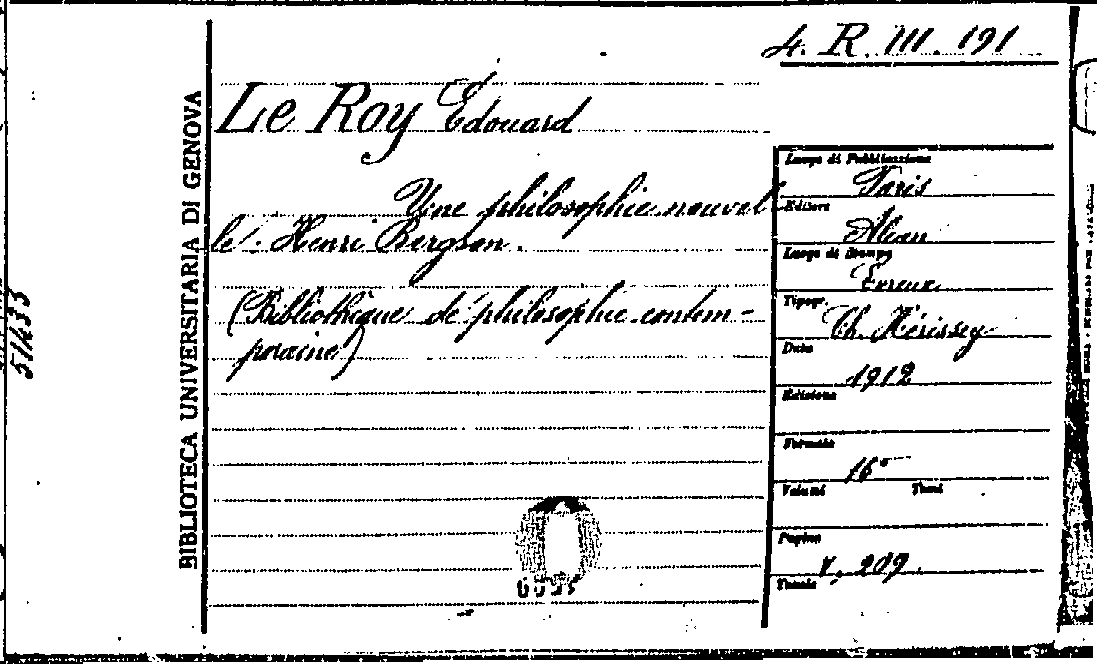 4. R. III. 191
BIBLIOTECA UNIVERSITARIA DI GENOVA
51433
Le Roy Édouard
Une philosophie nouvel
le: Henri Bergson.
(Bibliothèque de philosophie contem-
poraine)
Luogo di Pubblicazione
Paris
Editore
Alcan
Luogo di Stampa
Évreux
Tipogr.
Ch. Hérissey
Data
1912
Edizione
Formato
16°
Volumi Tomi
Pagine
V, 209.